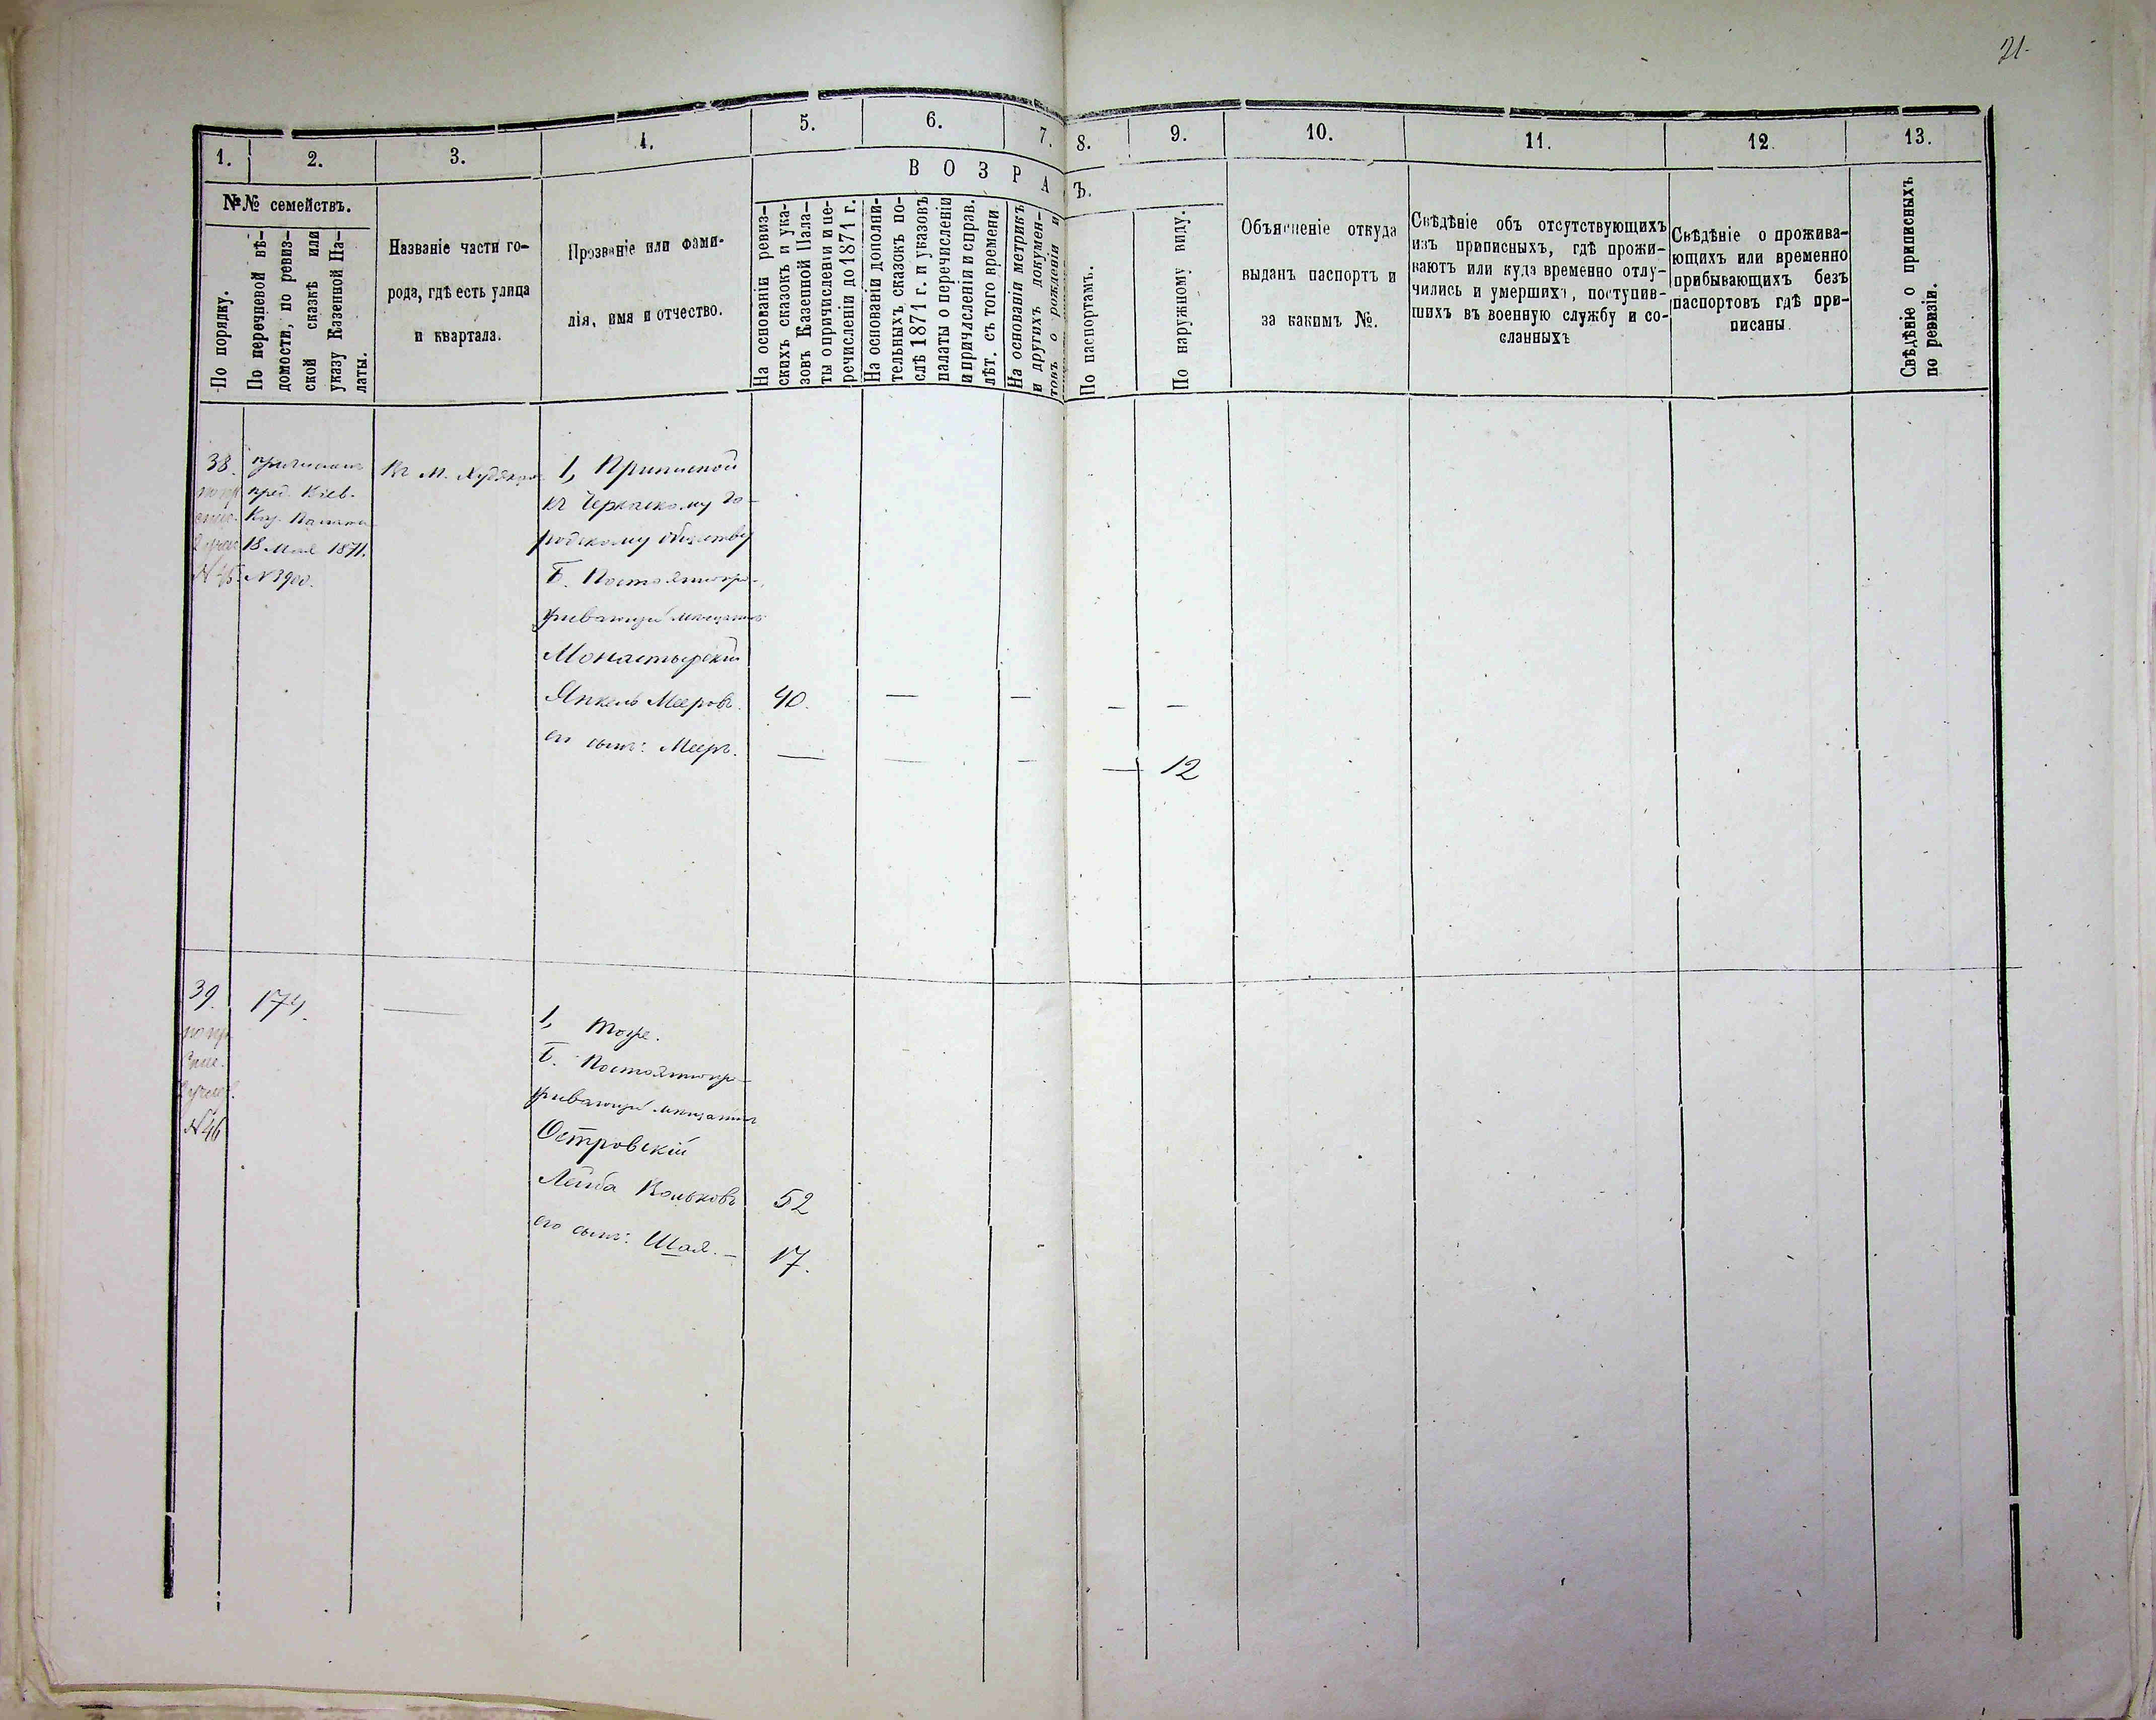 21.
1. 2. 3. 4. 5. 6. 7. 8. 9. 10. 11. 12. 13.
№№ семействъ.
По порядку.
По перечневой вѣ-
домости, по ревиз-
ской сказкѣ или
указу Казенной Па-
латы.
Названіе части го-
рода, гдѣ есть улица
и квартала.
Прозваніе или фами-
лія, имя и отчество.
В О З Р А
Ъ.
На основаніи ревиз-
скихъ сказокъ и ука-
зовъ Казенной Пала-
ты о причисленіи и пе-
речисленіи до 1871 г.
На основаніи дополни-
тельныхъ сказокъ по-
слѣ 1871 г. и указовъ
палаты о перечисленіи
и причисленіи и справ.
лѣт. съ того времени
На основаніи метрикъ
и другихъ докумен-
товъ о рожденіи и
По паспортамъ.
По наружному виду.
Объясненіе откуда
выданъ паспортъ и
за какимъ №.
Свѣдѣніе объ отсутствующихъ
изъ приписныхъ, гдѣ прожи-
ваютъ или куда временно отлу-
чились и умершихъ, поступив-
шихъ въ военную службу и со-
сланныхъ
Свѣдѣніе о прожива-
ющихъ или временно
прибывающихъ безъ
паспортовъ гдѣ при-
писаны.
Свѣдѣніе о приписныхъ
по ревизіи.
38.
по пр.
N 45.
пред. Кіев.
Каз. Палаты
18 Мая 1871.
N 3900.
Въ М.
1, Приписной
къ Черкаскому го-
родскому обществу
Б. Постояннопро-
живающій мещанинъ
Монастырскій
Янкель Мееровъ. 40. — — — —
его сынъ: Мееръ. — — — — 12
39. 174. —
по пр.
N 46
1, Тоже.
Б. Постояннопро-
живающій мещанинъ
Островскій
Лейба Вольковъ 52
его сынъ: Шая. — 17.